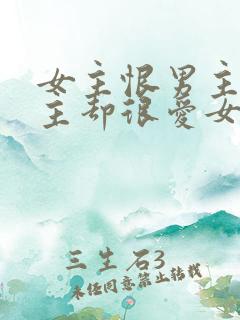 女主恨男主
主却很爱女
三生石3
未经同意禁止转载